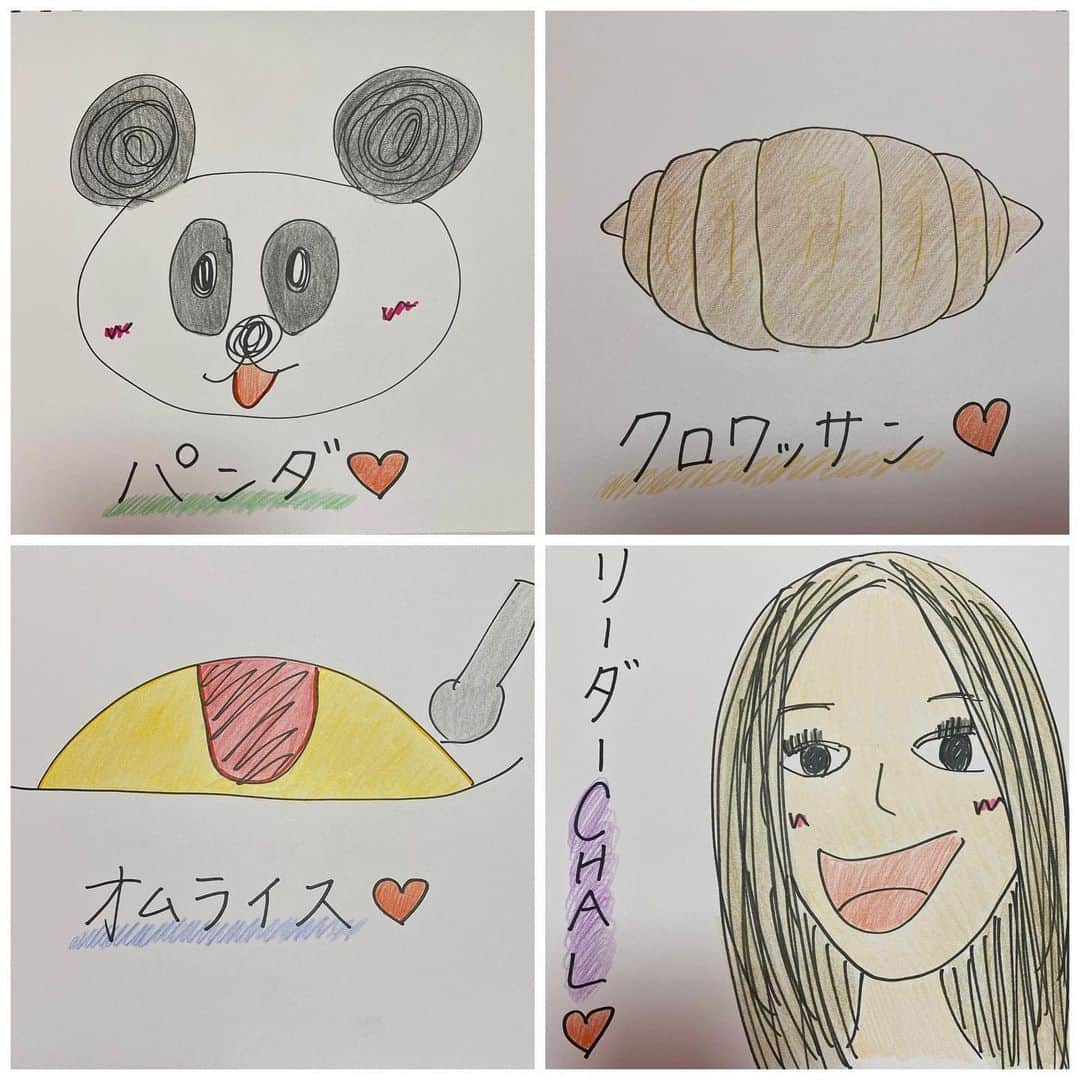 パンダ♥
クロワッサン♥
オムライス♥
リーダーCHAL♥